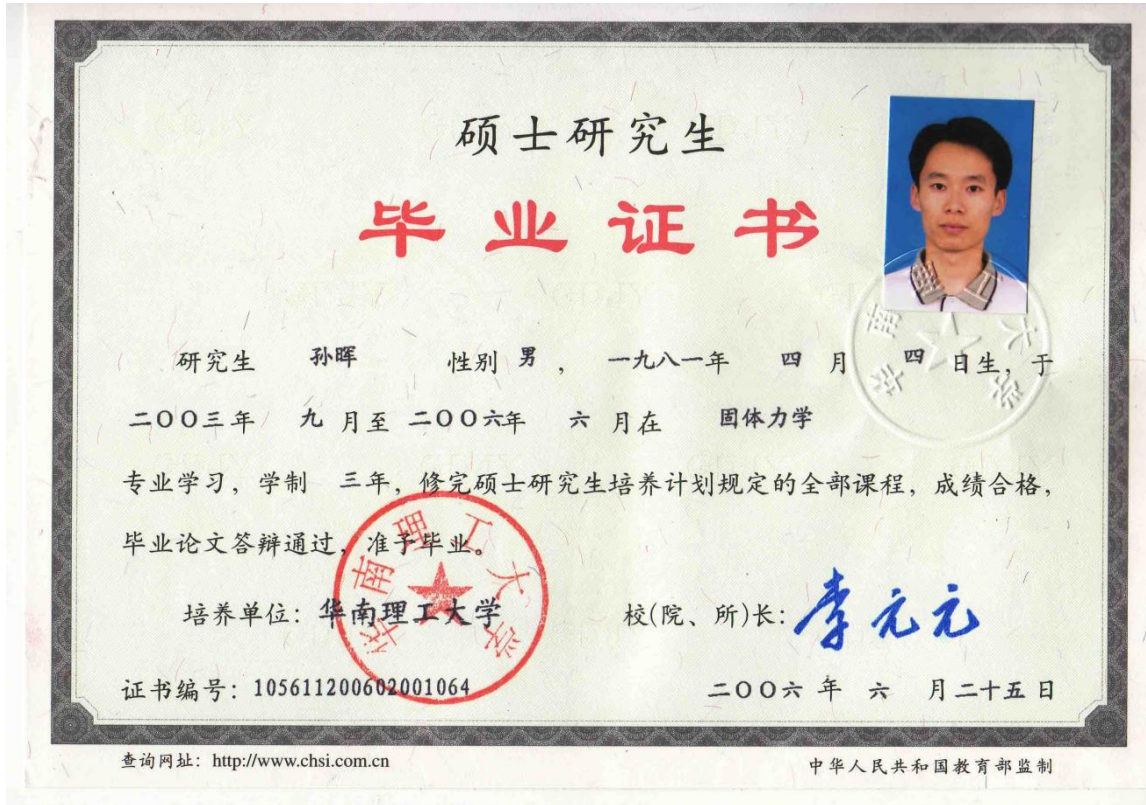 硕士研究生
毕业证书
研究生 孙晖 性别 男 , 一九八一年 四 月 四 日生, 于
二〇〇三年 九 月至 二〇〇六年 六 月在 固体力学
专业学习, 学制 三年, 修完硕士研究生培养计划规定的全部课程, 成绩合格,
毕业论文答辩通过, 准予毕业。
培养单位: 华南理工大学
校(院、所)长: 李元元
华南理工大学
华南理工大学
证书编号: 105611200602001064
二〇〇六 年 六 月二十五日
查询网址: http://www.chsi.com.cn
中华人民共和国教育部监制